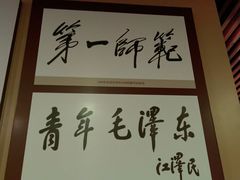 第一師範
青年毛泽东
江泽民